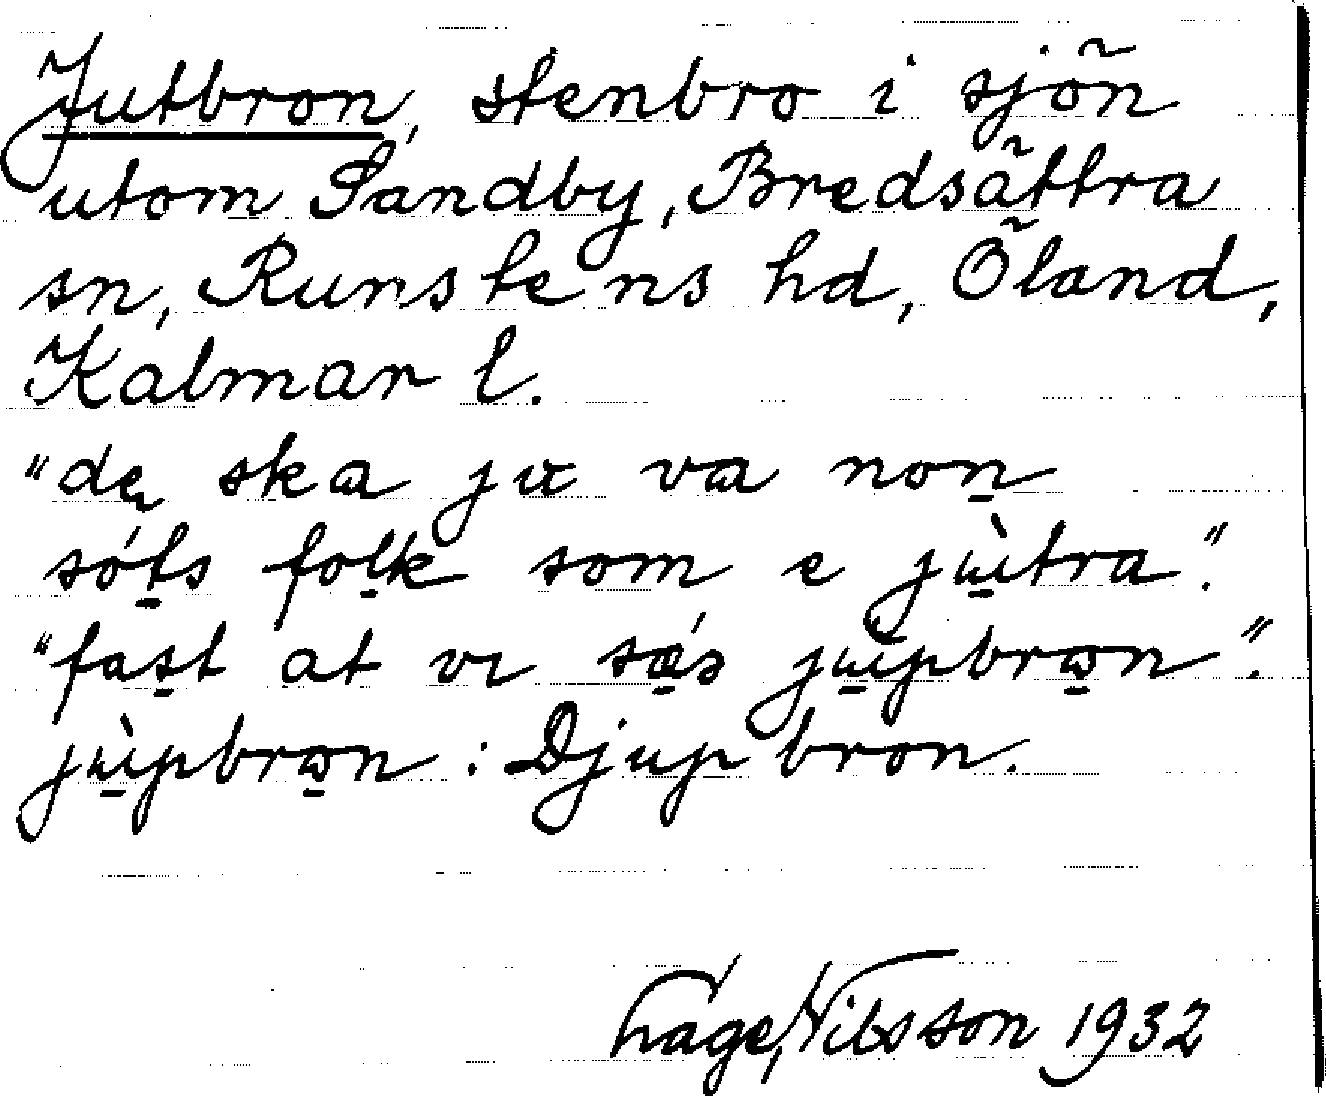 Jutbron, stenbro i sjön
utom Sandby, Bredsättra
sn, Runstens hd, Öland,
Kalmar l.
"de ska ju va non
sóts folk som e jùtra".
"fast at vı sǽs jùpbrɷn".
jùpbrɷn : Djupbron.
Nilsson 1932